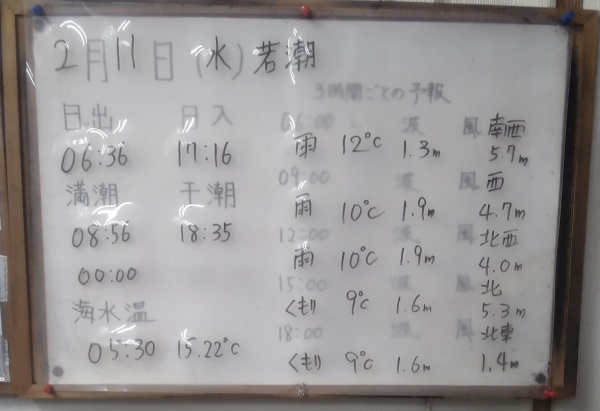 2月11日(水)若潮
3時間ごとの予報
日出 日入
06:36 17:16
満潮 干潮
08:56 18:35
00:00
海水温
05:30 15.22℃
06:00 波 風 南西
雨 12℃ 1.3m 5.7m
09:00 波 風 西
雨 10℃ 1.9m 4.7m
12:00 波 風 北西
雨 10℃ 1.9m 4.0m
15:00 波 風 北
くもり 9℃ 1.6m 5.3m
18:00 波 風 北東
くもり 9℃ 1.6m 1.4m